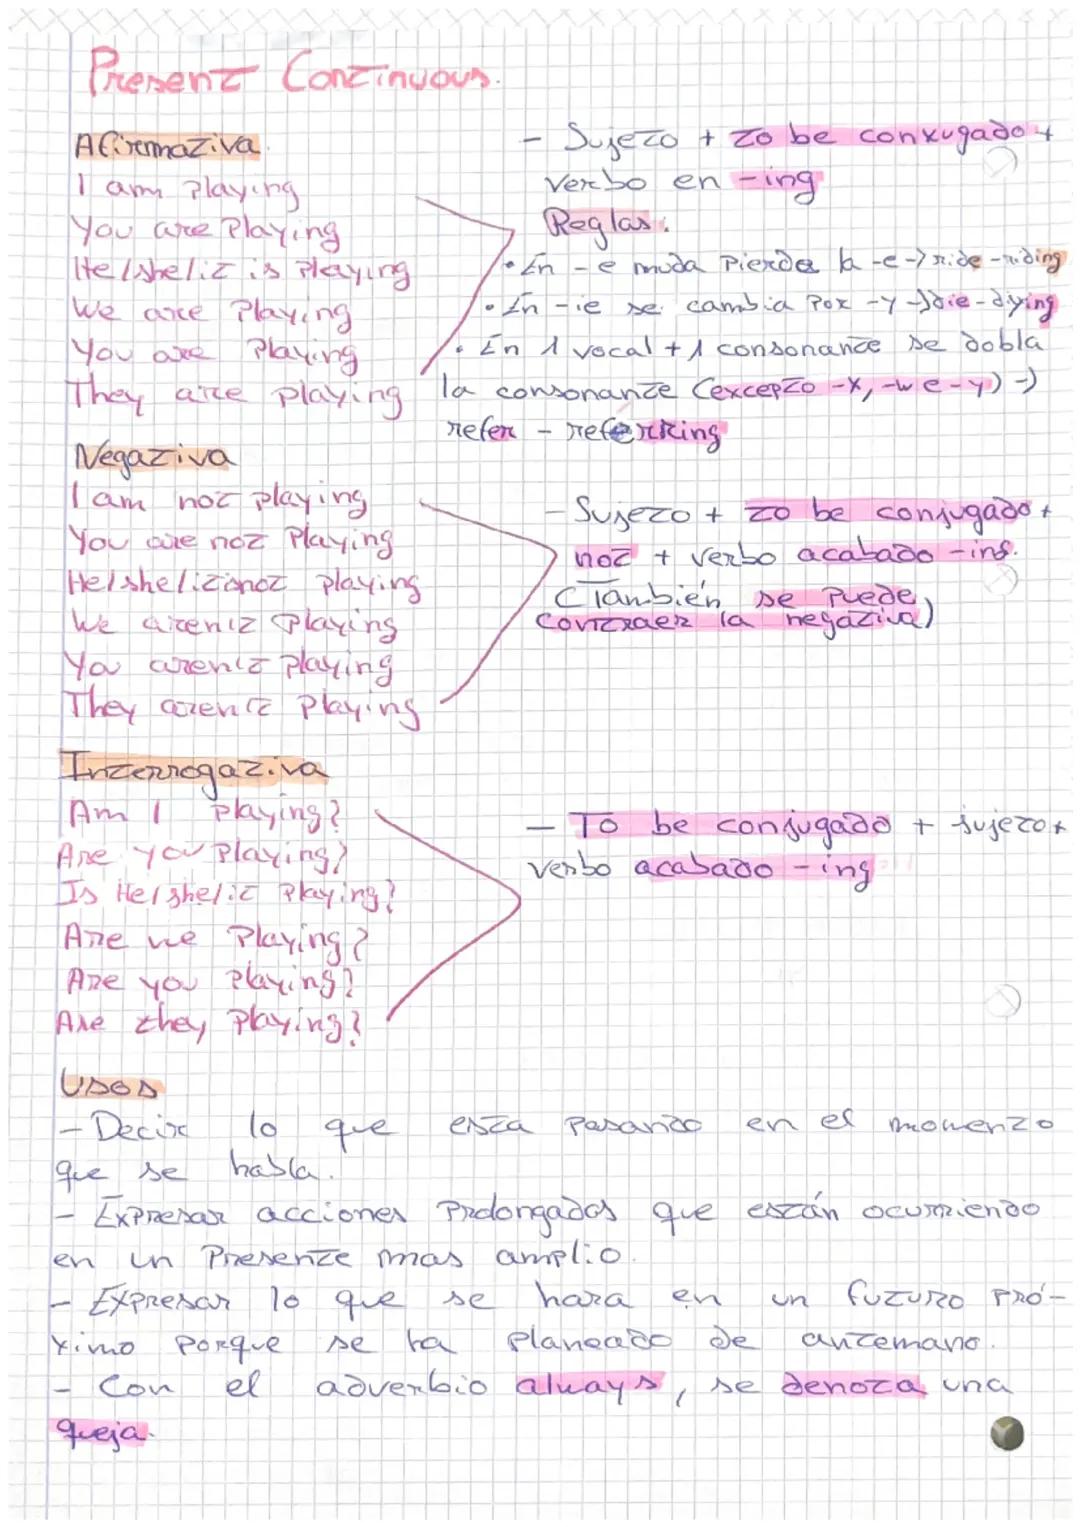 Present Continuous.
Afirmativa.
I am playing
You are playing
He/she/it is playing
We are playing
You are playing
They are playing
- Sujeto + to be conxugado +
verbo en -ing
Reglas:
• En -e muda pierde la -e -> ride - riding
• En -ie se cambia por -y -> die - diying
• En 1 vocal + 1 consonante se dobla
la consonante (excepto -x, -w e -y) ->
refer - referring
Negativa
I am not playing
You are not playing
He/she/it isnot playing
We aren't playing
You aren't playing
They aren't playing
- Sujeto + to be conjugado +
not + verbo acabado -ing.
(También se puede
contraer la negativa)
Interrogativa
Am I playing?
Are you playing?
Is He/she/it playing?
Are we playing?
Are you playing?
Are they playing?
- To be conjugado + sujeto +
verbo acabado -ing
Usos
- Decir lo que esta pasando en el momento
que se habla.
- Expresar acciones prolongadas que están ocurriendo
en un presente mas amplio.
- Expresar lo que se hara en un futuro pró-
ximo porque se ha planeado de antemano.
- Con el adverbio always, se denota una
queja.